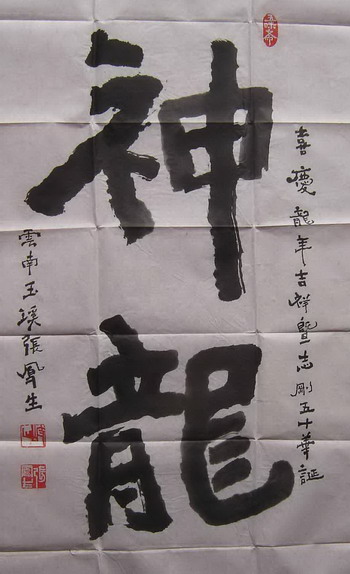 神龍
喜慶龍年吉祥暨志剛五十華誕
雲南玉溪張鳳生